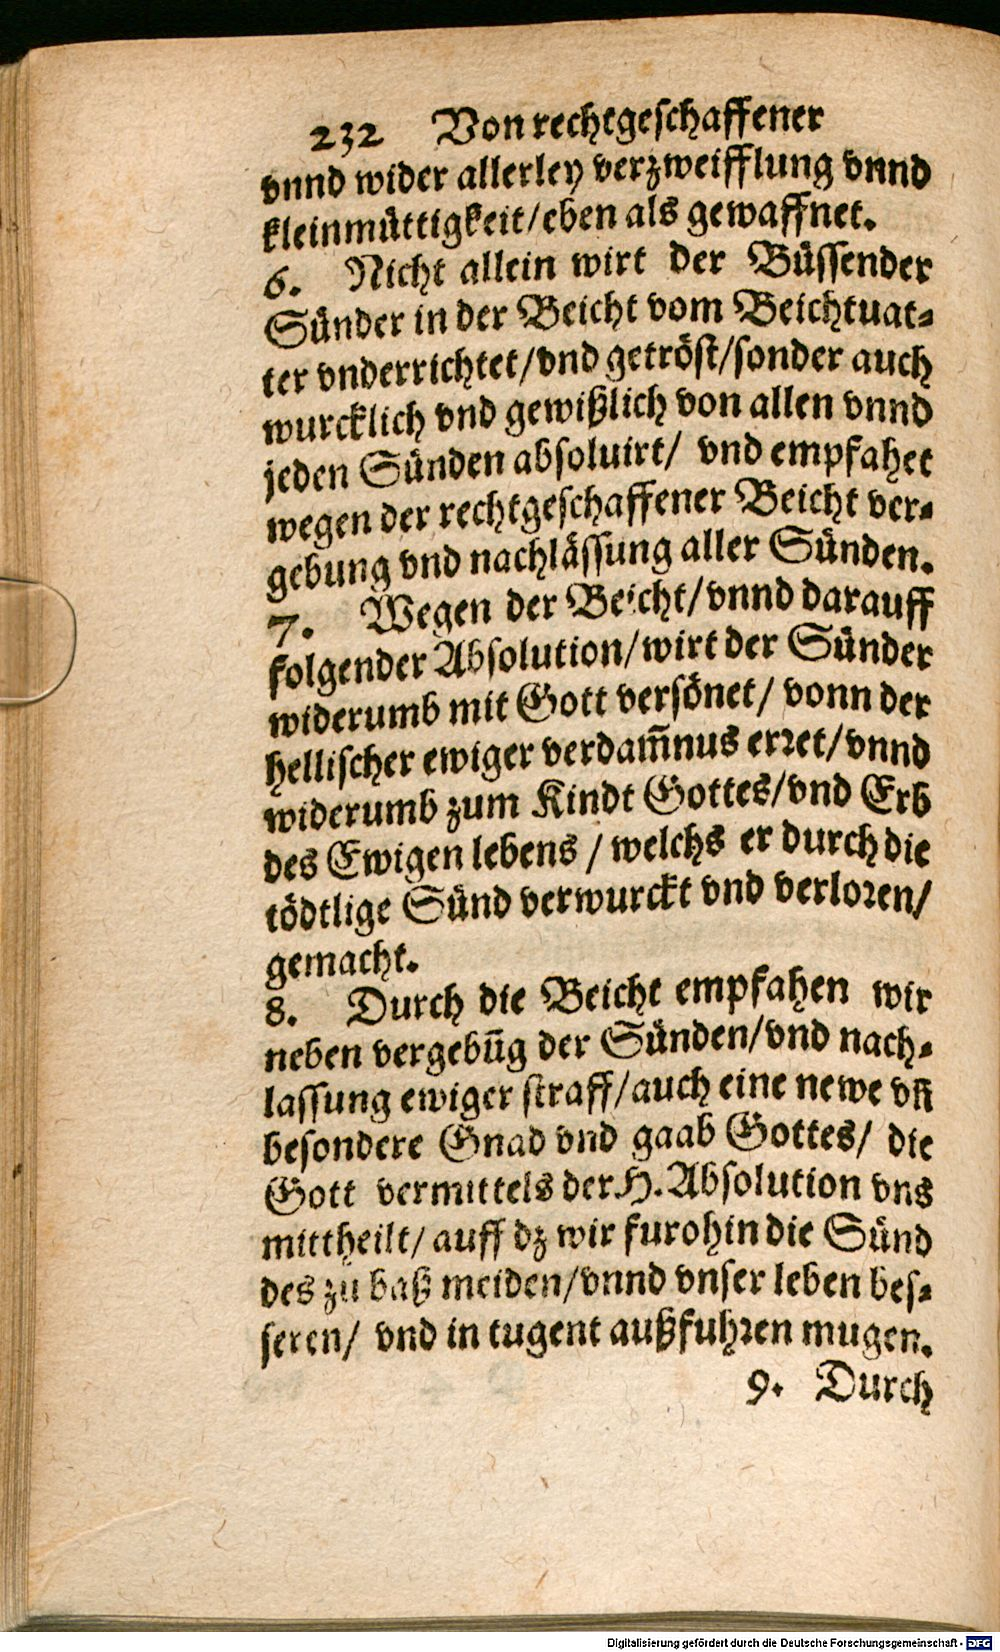 232 Von rechtgeschaffener
vnnd wider allerley verzweifflung vnnd
kleinmüttigkeit/eben als gewaffnet.
6. Nicht allein wirt der Büssender
Sünder in der Beicht vom Beichtuat-
ter vnderrichtet/vnd getröst/sonder auch
wurcklich vnd gewißlich von allen vnnd
jeden Sünden absoluirt/ vnd empfahet
wegen der rechtgeschaffener Beicht ver-
gebung vnd nachlässung aller Sünden.
7. Wegen der Beicht/vnnd darauff
folgender Absolution/wirt der Sünder
widerumb mit Gott versönet/ vonn der
hellischer ewiger verdam̄nus erret/vnnd
widerumb zum Kindt Gottes/vnd Erb
des Ewigen lebens / welchs er durch die
tödtlige Sünd verwurckt vnd verloren/
gemacht.
8. Durch die Beicht empfahen wir
neben vergebūg der Sünden/vnd nach-
lassung ewiger straff/auch eine newe vn̄
besondere Gnad vnd gaab Gottes/ die
Gott vermittels der H. Absolution vns
mittheilt/ auff dz wir furohin die Sünd
des zu baß meiden/vnnd vnser leben bes-
seren/ vnd in tugent außfuhren mugen.
9. Durch
Digitalisierung gefördert durch die Deutsche Forschungsgemeinschaft - DFG